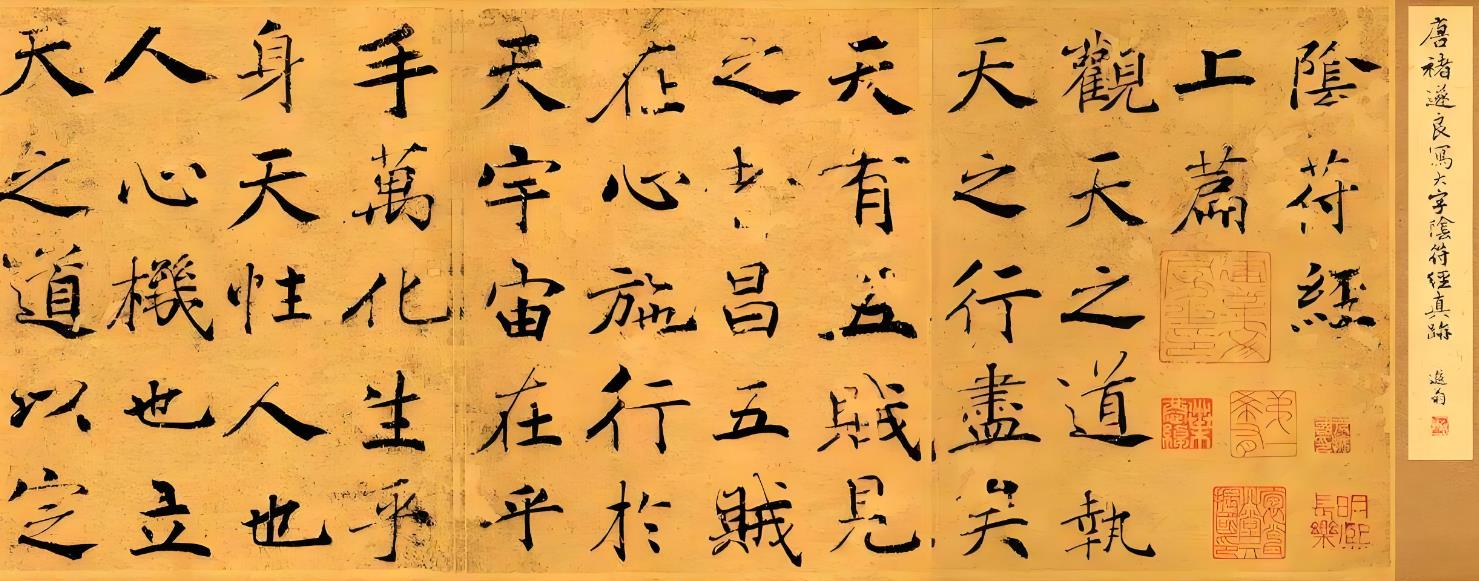 唐褚遂良寫大字陰符經真跡
遐翁
陰符經
上篇
觀天之道執
天之行盡矣
天有五賊見
之者昌五賊
在心施行於
天宇宙在乎
手萬化生乎
身天性人也
人心機也立
天之道以定